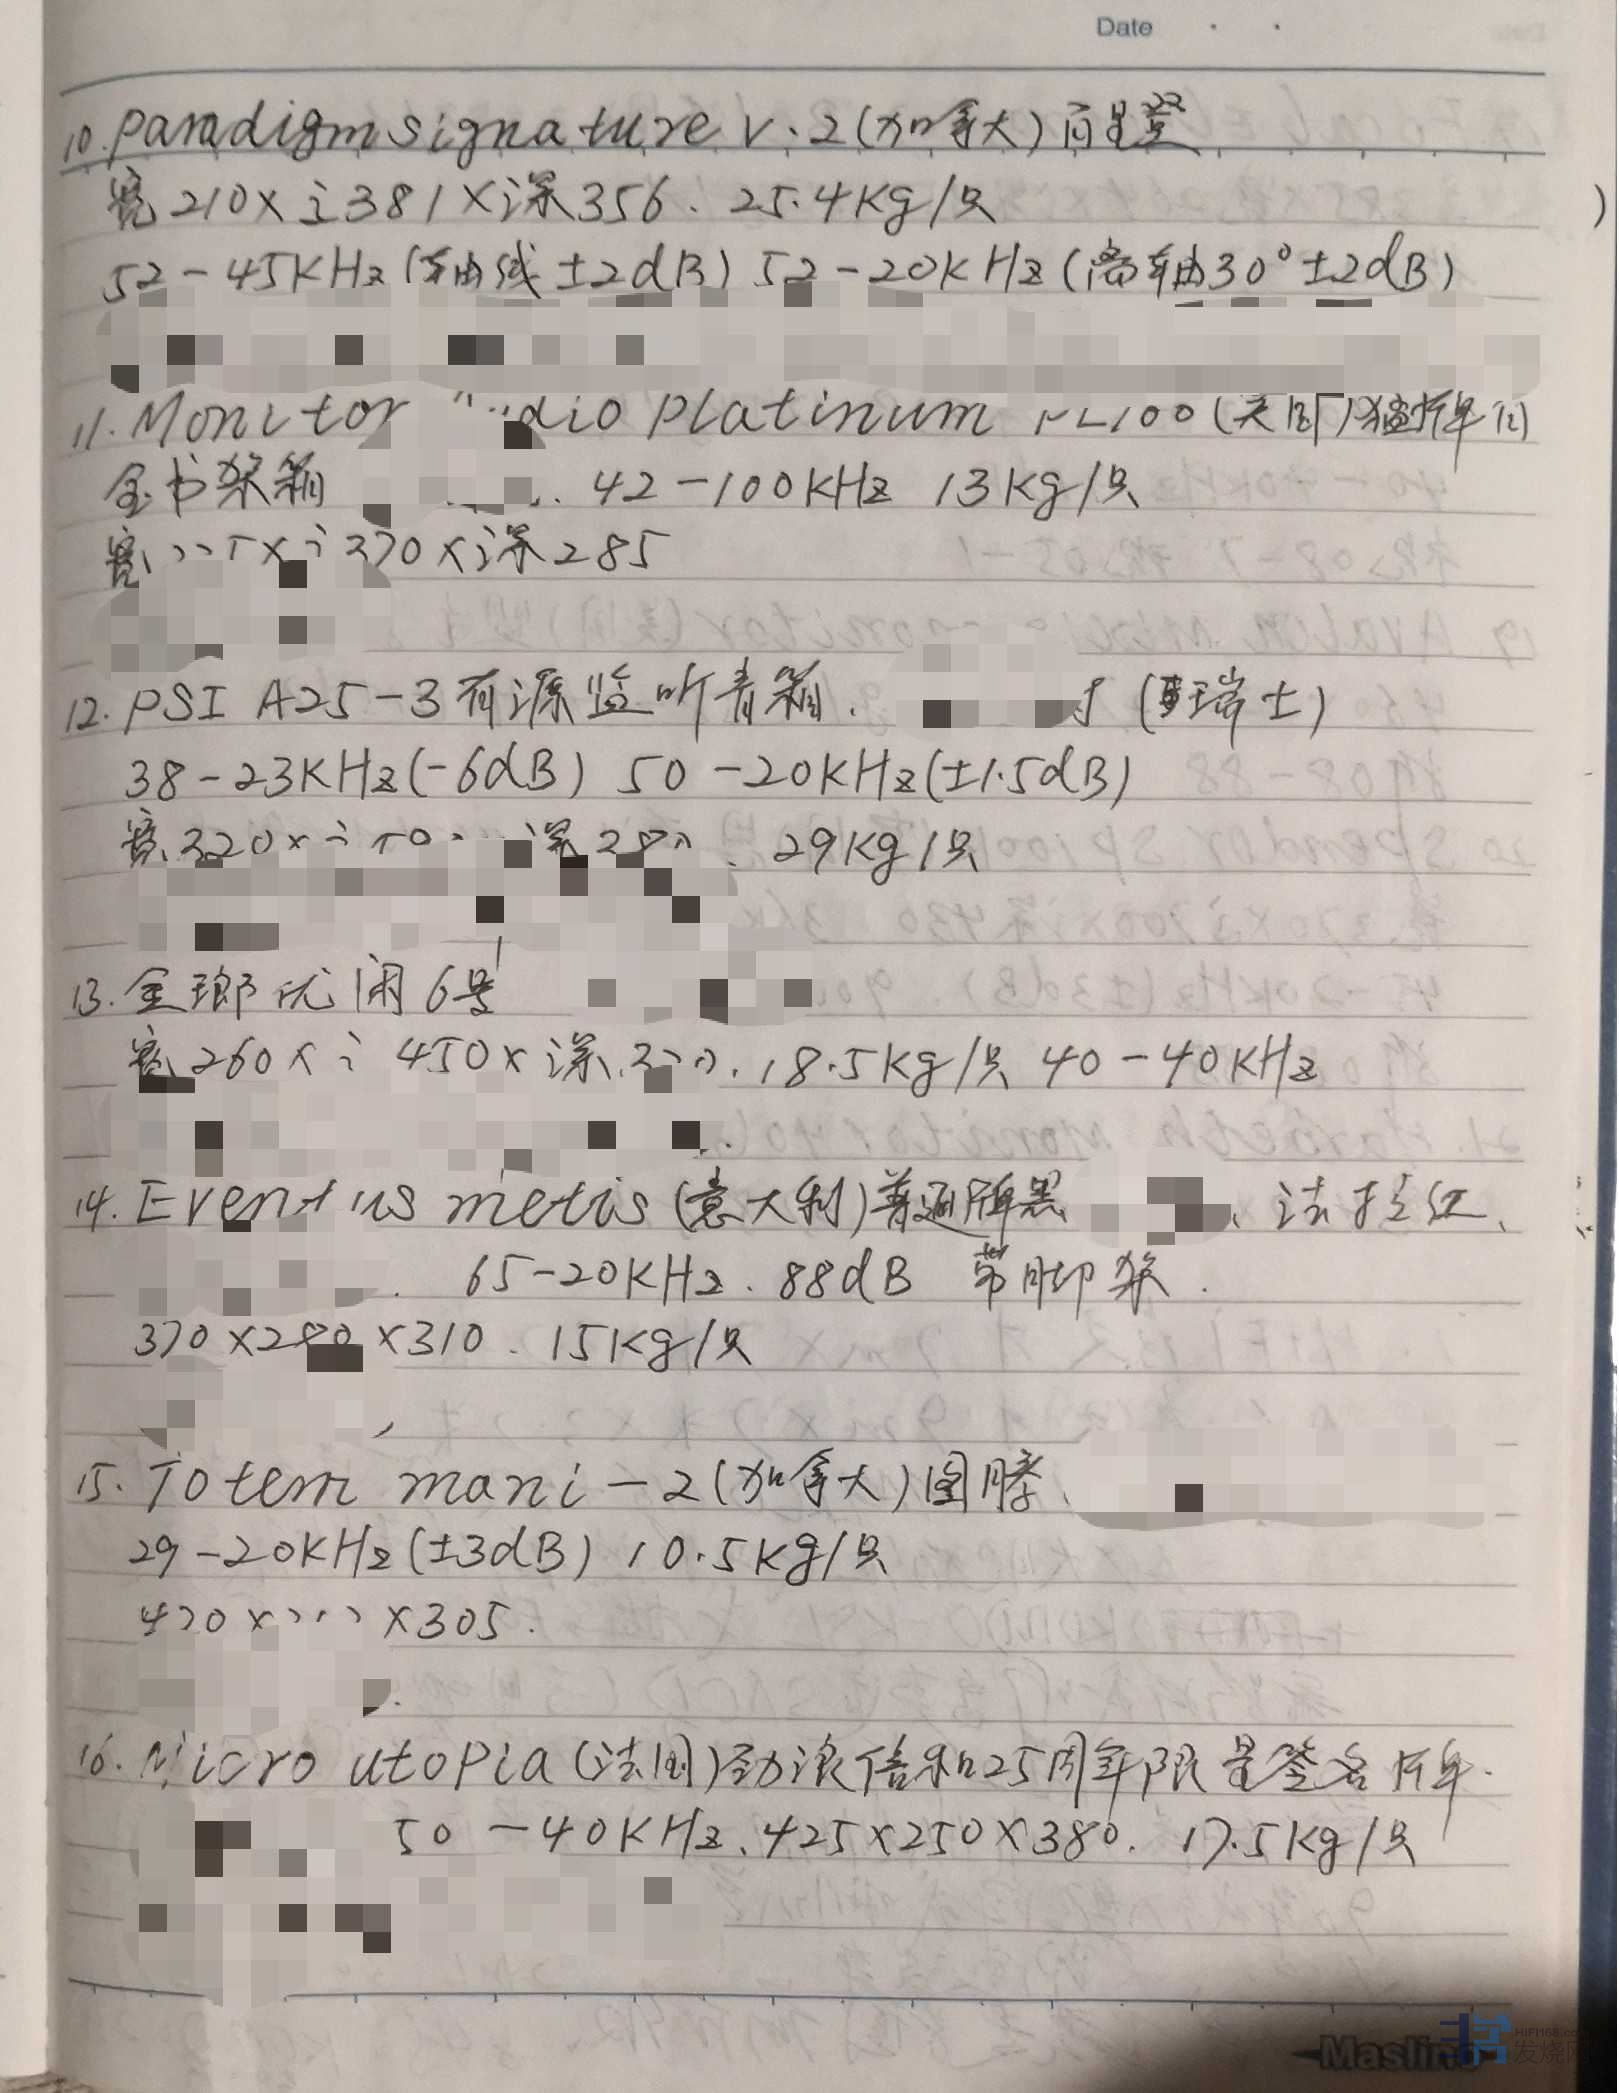 Date
10. Paradigm signature V.2 (加拿大) 百里登
宽210×高381×深356. 25.4Kg/只
52-45KHz (轴线±2dB) 52-20KHz (离轴30°±2dB)
11. Monitor dio Platinum PL100 (英国) 猫牌白
金书架箱 42-100KHz 13Kg/只
宽 5×高370×深285
12. PSI A25-3 有源监听音箱. (瑞士)
38-23KHz (-6dB) 50-20KHz (±1.5dB)
宽320× 深 . 29Kg/只
13. 金琅优闲6号
宽260×高450×深 . 18.5Kg/只 40-40KHz
14. Eventus metis (意大利) 普通牌黑 、法拉红、
65-20KHz. 88dB 带脚架.
370×280×310. 15Kg/只
15. Totem mani-2 (加拿大) 图腾
29-20KHz (±3dB) 10.5Kg/只
420× ×305.
16. Micro utopia (法国) 劲浪倍和25周年限量签名牌.
50-40KHz、425×250×380. 17.5Kg/只
HIFI168.com
发烧网